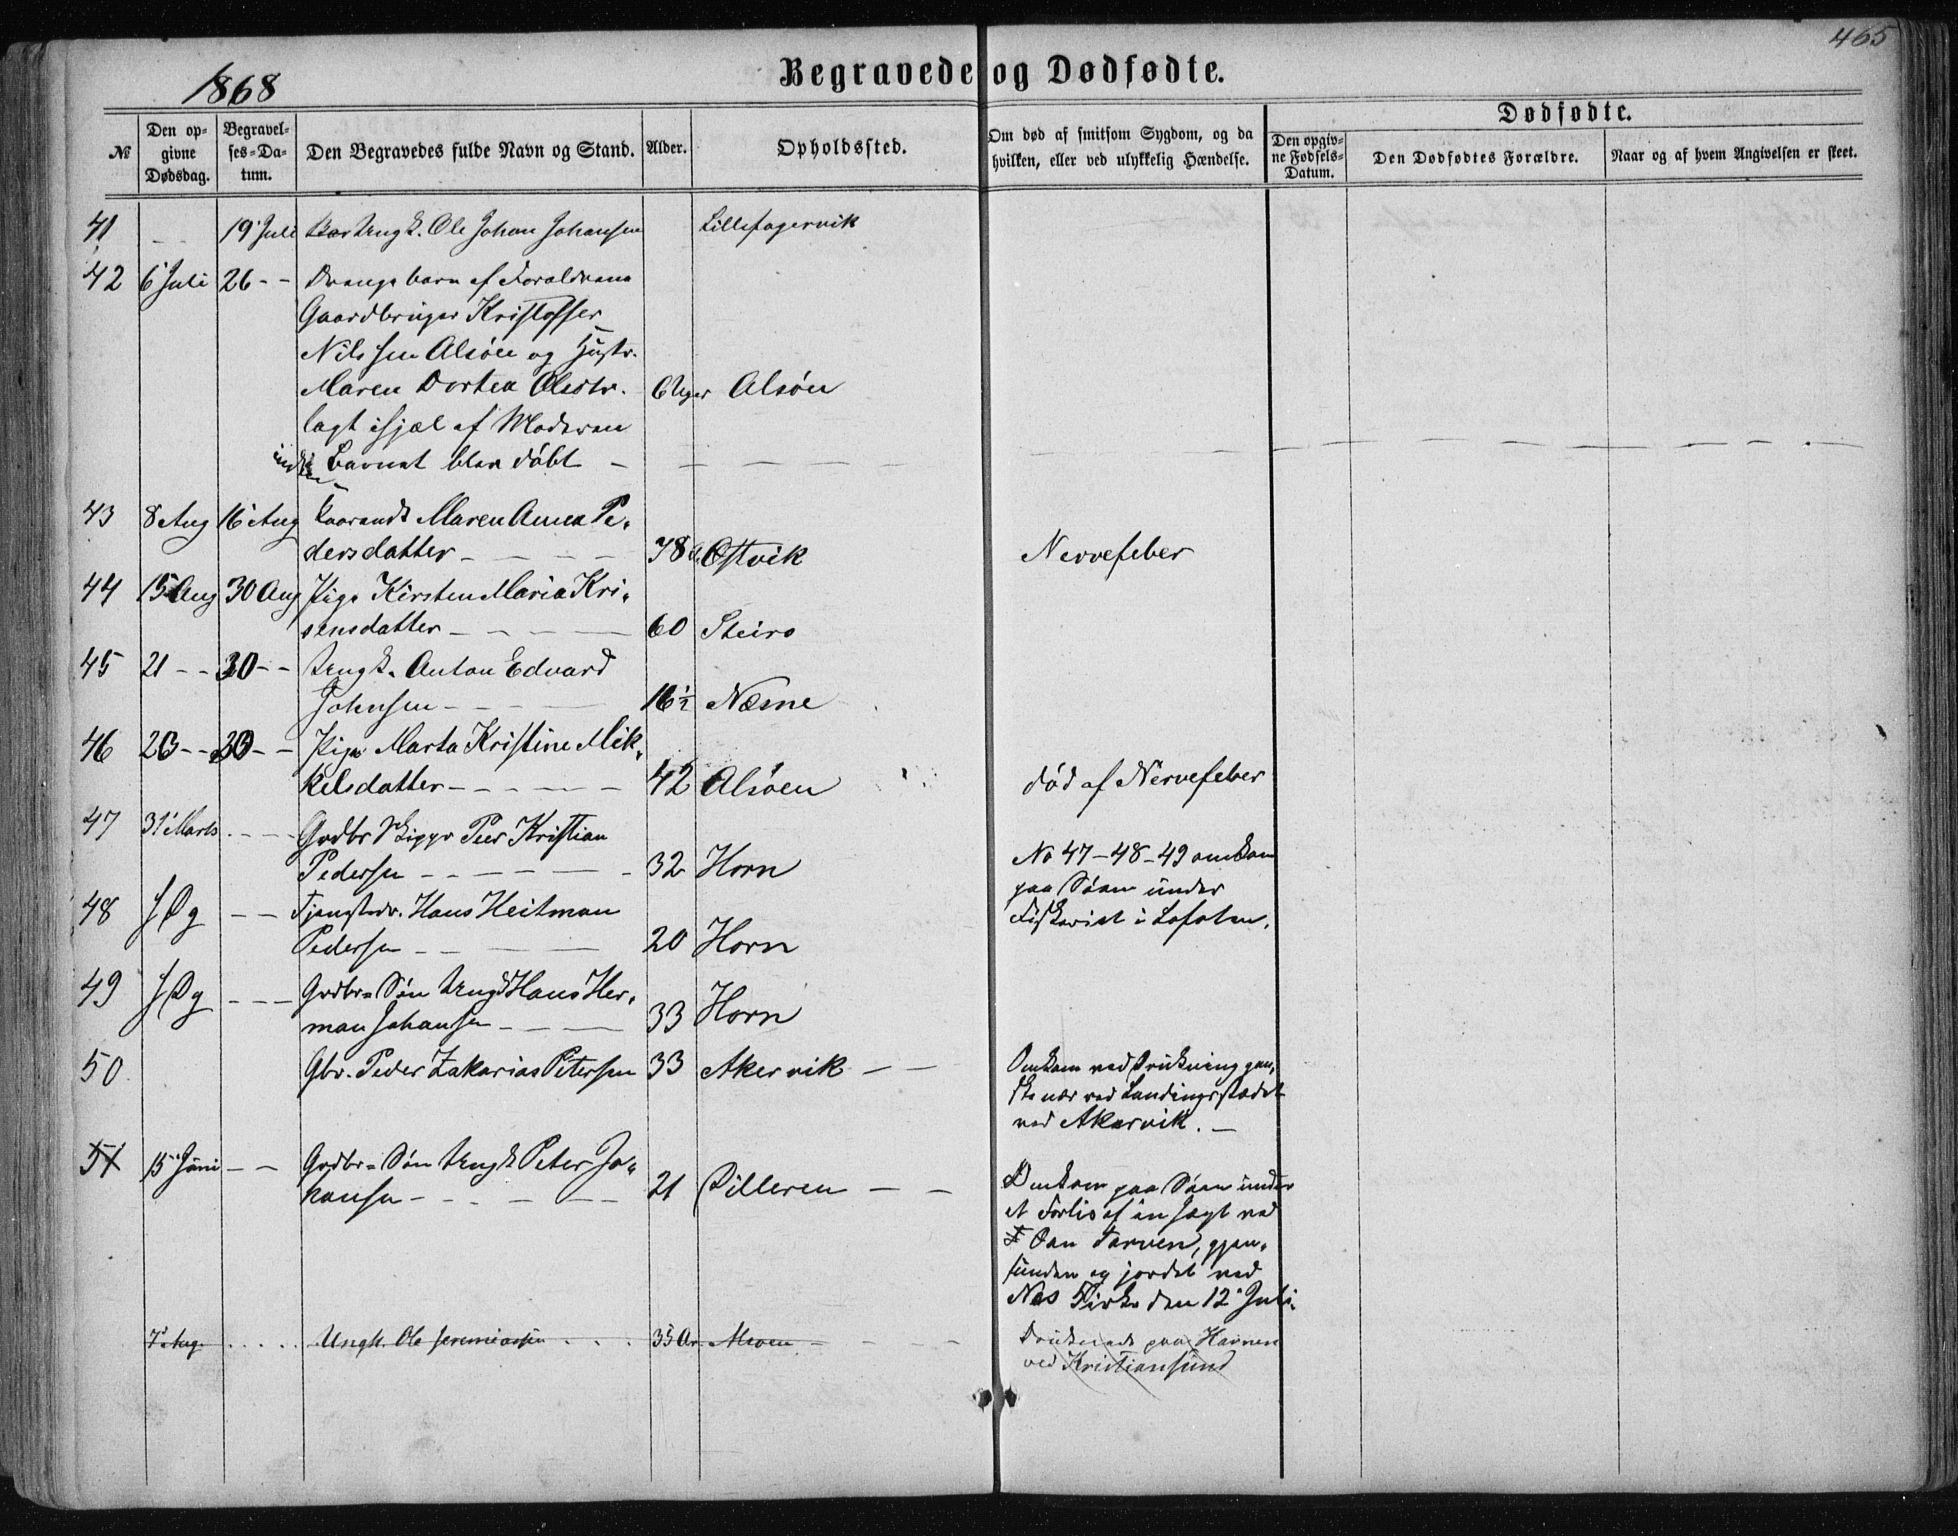 465
1868
Begravede og Dødfødte.
№
Den opgivne Dødsdag.
Begravelses-Datum.
Den Begravedes fulde Navn og Stand.
Alder.
Opholdssted.
Om død af smitsom Sygdom, og da hvilken, eller ved ulykkelig Hændelse.
Dødfødte.
Den opgivne Fødsels-Datum.
Den Dødfødtes Forældre.
Naar og af hvem Angivelsen er skeet.
41 19 Juli Ungk. Ole Johan Johansen Lillefagervik
42 6 Juli 26 - - Drengebarn af Forældrene
Gaardbruger Kristoffer
Nilssen Alsøen og Hustr.
Maren Dortea Olsdtr.
lagt ihjæl af Moderen 6 Uger Alsøen
inden Barnet blev døbt
43 8 Aug 16 Aug Maren Anna Pe-
dersdatter 78 Ostvik Nervefeber
44 15 Aug 30 Aug Pige Kirsten Maria Kri-
sensdatter 60 Steiro
45 21 - - 30 - - Ungk. Anton Edvard
Johnsen 16 ½ Næsne
46 23 - - 30 - - Pige Marta Kristine Mik-
kelsdatter 42 Alsøen død af Nervefeber
47 31 Marts Grdbr Skippr Peer Kristian
Pedersen 32 Horn No 47-48-49 omkom
paa Søen under
Fiskeriet i Lofoten.
48 - - Tjenstedr. Hans Heitman
Pedersen 20 Horn
49 - - - Grdbr= Søn Ungk Hans Her-
man Johansen 33 Horn
50 Gbr. Peder Zakarias Petersen 33 Akervik - - Omkom ved Drukning gan-
ske nær ved Landingsstædet
ved Akervik.
51 15 Juni - - Grdbr= Søn Ungk Peter Jo-
hansen 21 Pilleren - - Omkom paa Søen under
et Forlis af en Jægt ved
Tarven, gjen-
funden og jordet ved
Næs Kirke den 12 Juli.
7 Aug. Ungk. Ole Jeremiassen 35 Ar Druknede paa Havnen
ved Kristiansund